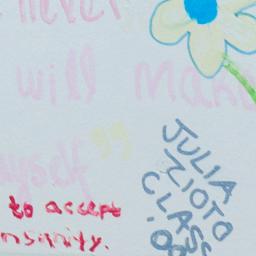 never
will
myself"
to accept
nsanity.
JULIA
ZIOTO
CLASS